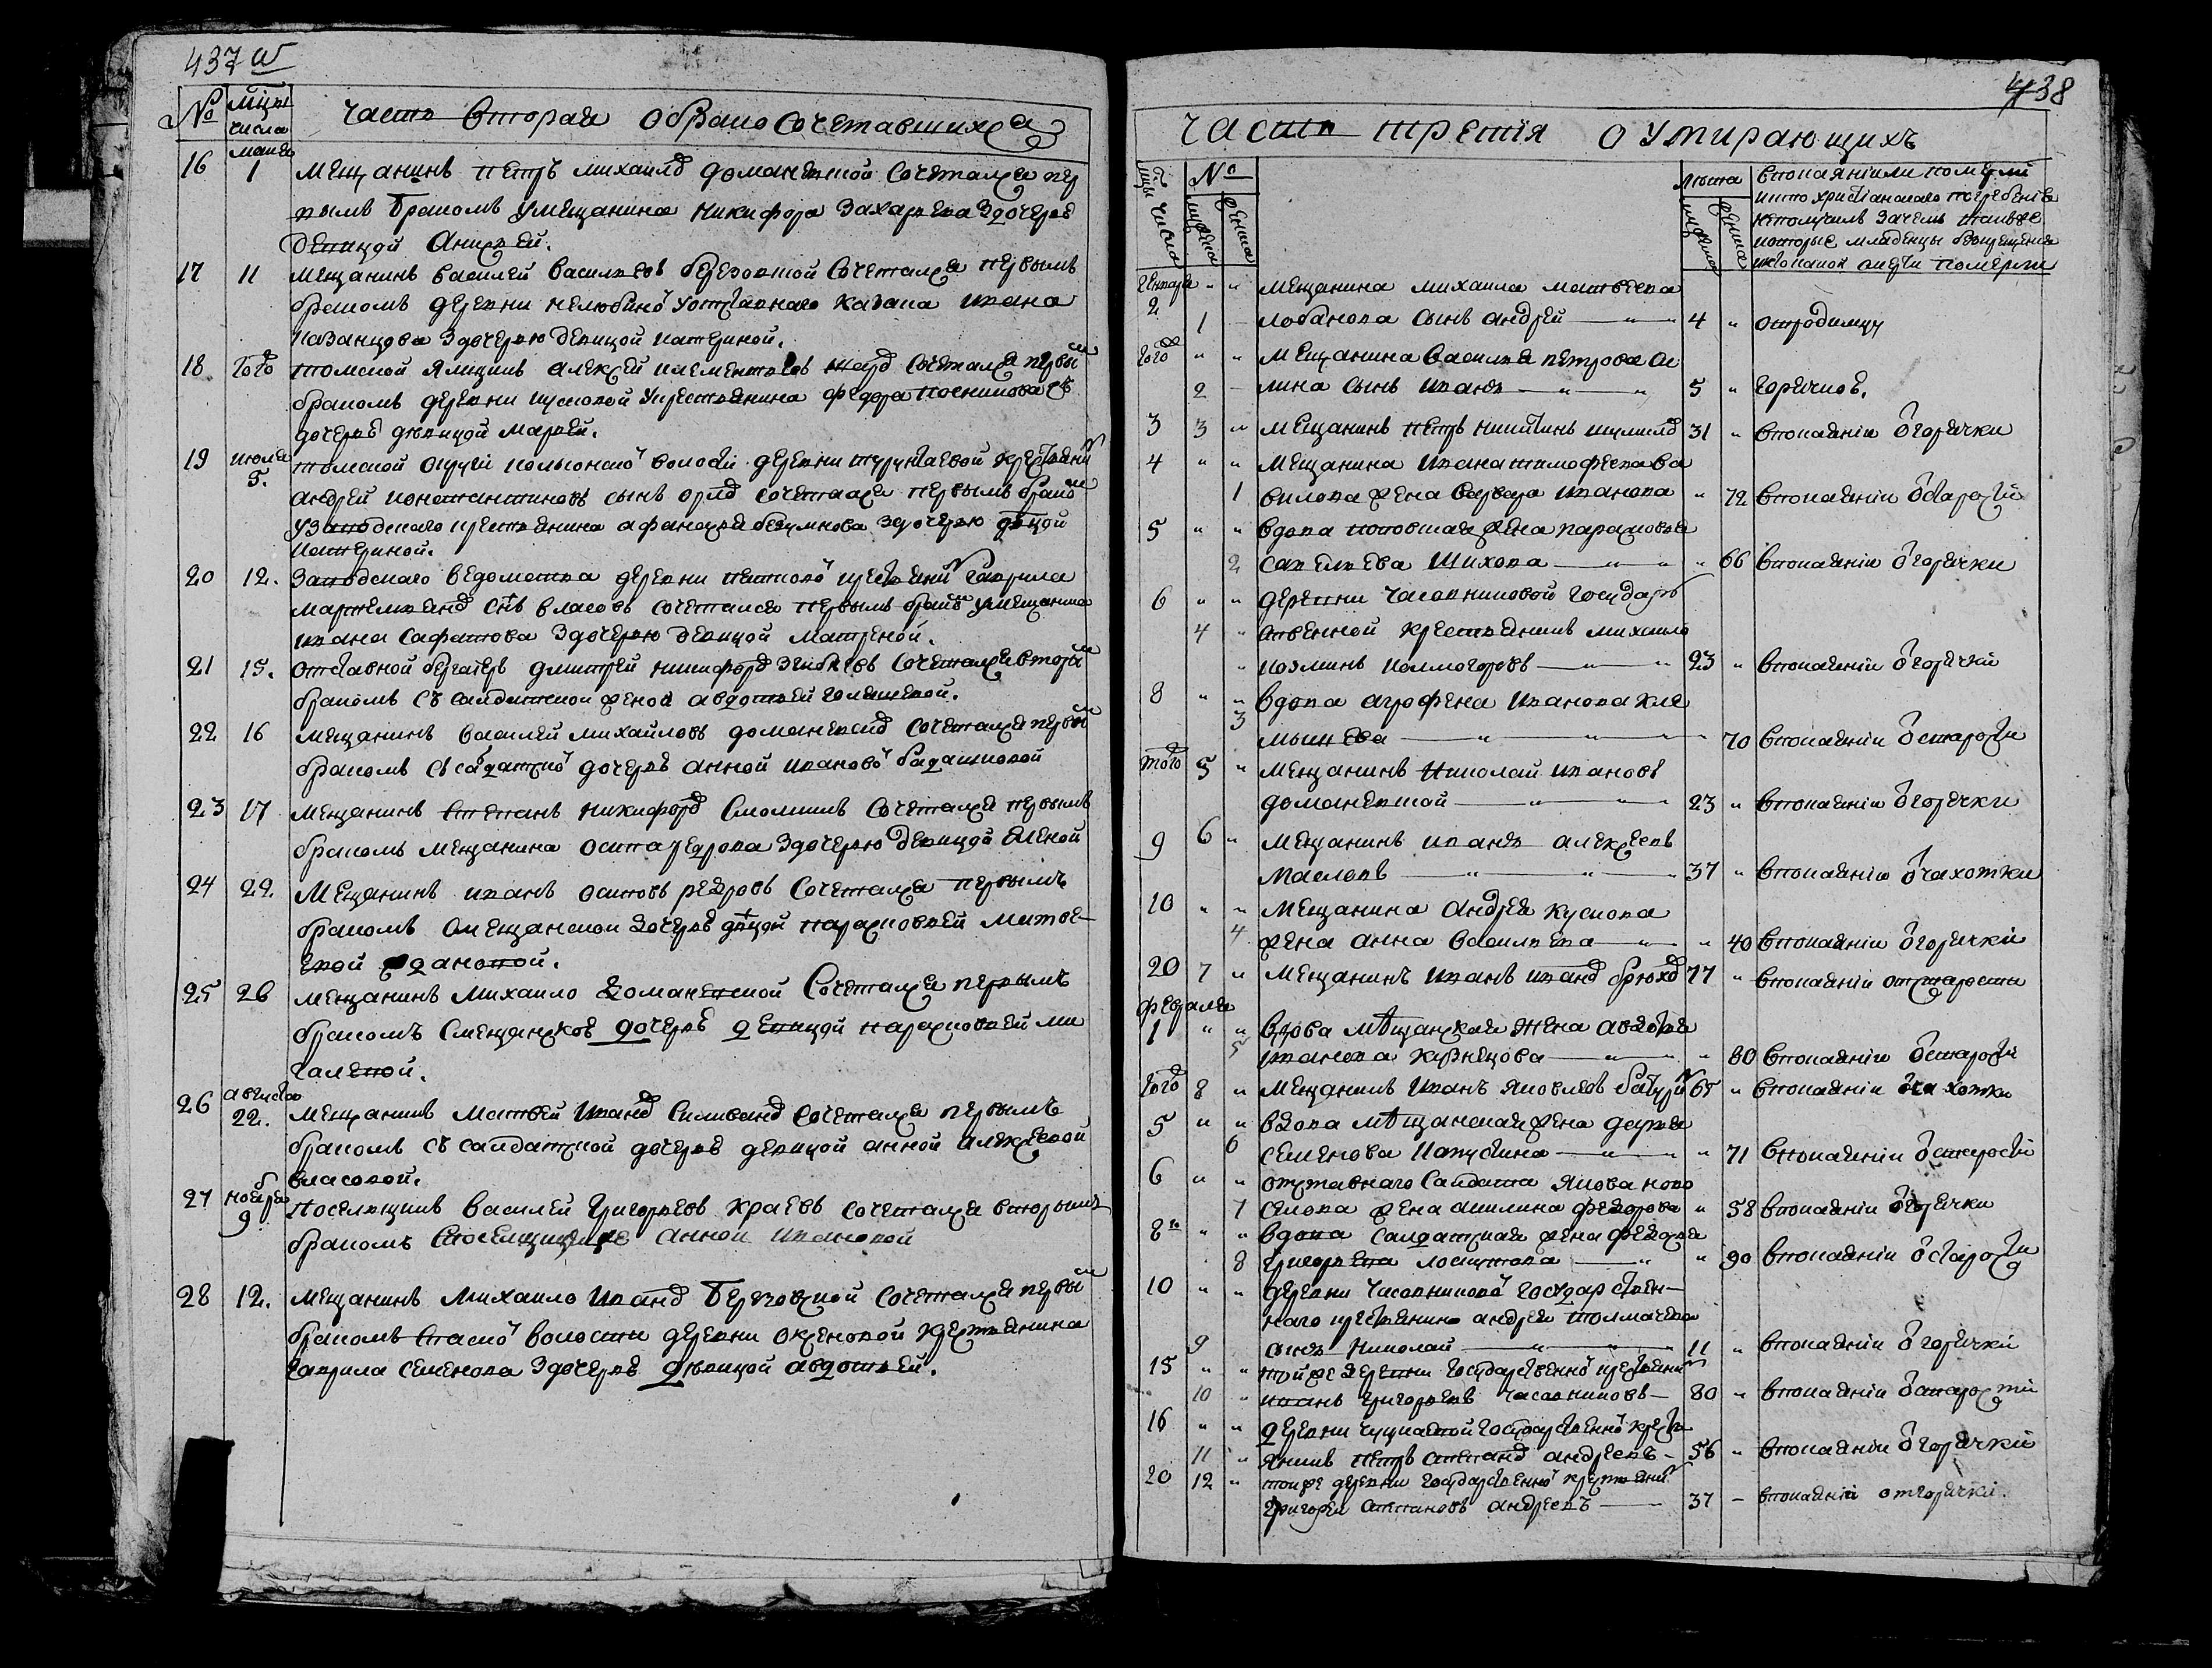 437 w
№ мцы числа
часть вторая о бракосочетавшихся
маия
16 1 мещанинъ петръ михаилов доманевской сочетался пер
вымъ бракомъ умещанина никифора захарьева здочерью
девицой анисьей.
17 11 мещанинъ василей васильевъ березовской сочетался первымъ
бракомъ деревни нелюбиной отставнаго казака ивана
казанцова здочерью девицой катериной.
18 того томской ямщикъ алексей клементьевъ сочетался первым
бракомъ деревни кусковой укрестьянина федора посникова съ
дочерью девицой марьей.
19 июля 5. томской округи волости деревни турунтаевой крестьянин
андрей константиновъ сынъ орлов сочетался первымъ браком
узаводскаго крестьянина афанасья безумнова здочерью дѣвцой
катериной.
20 12. заводскаго ведомства деревни крестьянин гаврила
сынъ власовъ сочетался первымъ браком умещанина
ивана сафатова здочерью девицой матреной.
21 15. отставной дмитрей никифоров сочетался вторым
бракомъ съ салдатской женой авдотьей
22 16 мещанинъ василей михайловъ доманевской сочетался первым
бракомъ съ салдатской дочерью анной ивановой
23 17 мещанинъ степанъ никифоров смокнинъ сочетался первымъ
бракомъ мещанина осипа редрова здочерью девицой еленой
24 22. мещанинъ иванъ осиповъ редровъ сочетался первымъ
бракомъ смещанской дочерью двцой парасковьей матве-
евой ждановой.
25 26 мещанинъ михаило доманевской сочетался первымъ
бракомъ смещанской дочерью девицой парасковьей ми
галевой.
августа
26 22. мещанинъ матвей иванов силиванов сочетался первымъ
бракомъ съ салдатской дочерью девицой анной алексеевой
власовой.
27 ноября 9 поселщикъ василей григорьевъ краевъ сочетался вторымъ
бракомъ анной ивановой
28 12. мещанинъ михаило иванов березовской сочетался первым
бракомъ спаской волости деревни оксеновой крестьянина
гаврила семенова здочерью девицой авдотьей.
438
часть третія о умирающихъ
мцы числа № мужеска женска
лѣта мужеска женска
впокаяніили померли
икто христіанскаго погребенія
неполучилъ зачемъ также
которые младенцы безкрещения
икакой смерти померли
генваря
2 мещанина михаила матвеева
1 лобанова сынъ андрей 4 отродимцу
того мещанина василья петрова
2 сынъ иванъ 5 горячков.
3 3 мещанинъ петръ никитинъ 31 впокаяніи от горячки
4 мещанина ивана тимофеева
1 вилова жена варвара иванова 72 впокаяніи от старости
5 вдова поповская жена парасковья
2 савельева шихова 66 впокаяніи от горячки
6 деревни часовниковой государ
4 ственной крестьянинъ михаило
козминъ колмогоровъ 23 впокаяніи от горячки
8 вдова агрофена иванова
3 70 впокаяніи от старости
того 5 мещанинъ николай ивановъ
доманевской 23 впокаяніи от горячки
9 6 мещанинъ иванъ алексеевъ
масловъ 37 впокаяніи от чахотки
10 мещанина андрея кускова
4 жена анна васильева 40 впокаяніи от горячки
20 7 мещанинъ иванъ иванов брюхов 77 впокаяніи отстарости
февраля
1 вдова мѣщанская жена авдотья
5 иванова кузнецова 80 впокаяніи от старости
того 8 мещанинъ иванъ яковлевъ батурин 65 впокаяніи от чахотки
5 вдова мѣщанская жена дарья
6 семенова капустина 71 впокаяніи от старости
6 отставнаго салдата якова ново
7 селова жена акилина федорова 58 впокаяніи от горячки
8 вдова салдатская жена федосья
8 григорьева лоскутова 90 впокаяніи от старости
10 деревни часовниковой государствен-
наго крестьянина андрея толмачева
9 сынъ николай 11 впокаяніи от горячки
15 тойже деревни государственной крестьянин
10 иванъ григорьевъ часовниковъ 80 впокаяніи от старости
16 деревни государственной кресть
11 янинъ петръ степанов андреевъ - 56 впокаяніи от горячки
20 12 тойже деревни государственной крестьянин
григорей степановъ андреевъ 37 впокаяніи отгорячки.